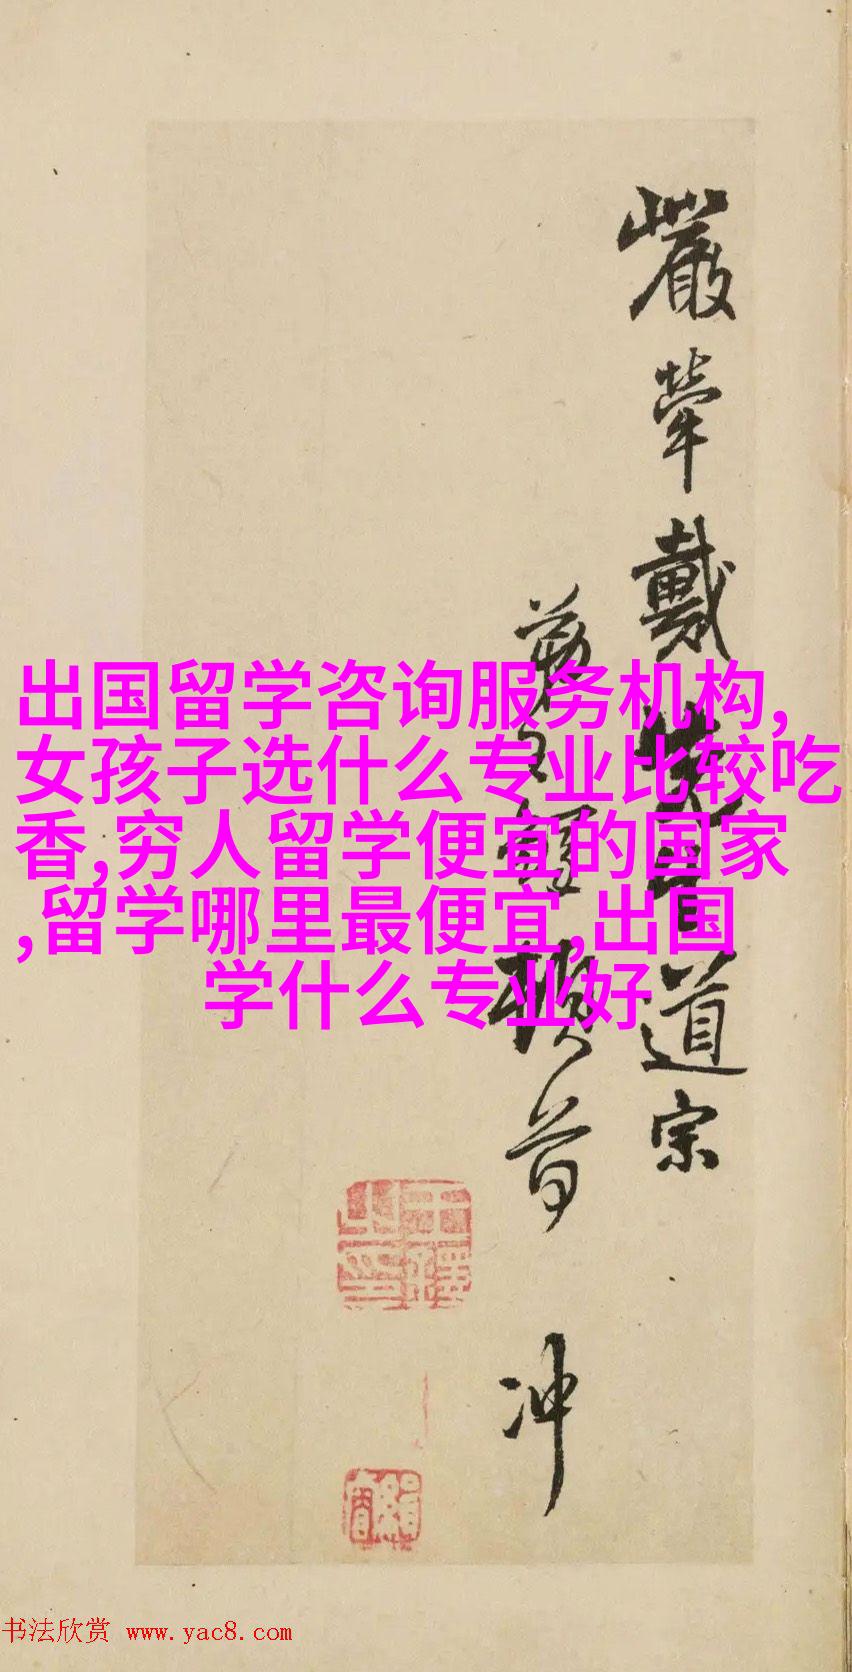 嚴犖戴先生道宗
王鐸頓首
冲
出国留学咨询服务机构,
女孩子选什么专业比较吃
香,穷人留学便宜的国家
,留学哪里最便宜,出国
学什么专业好
书法欣赏 www.yac8.com